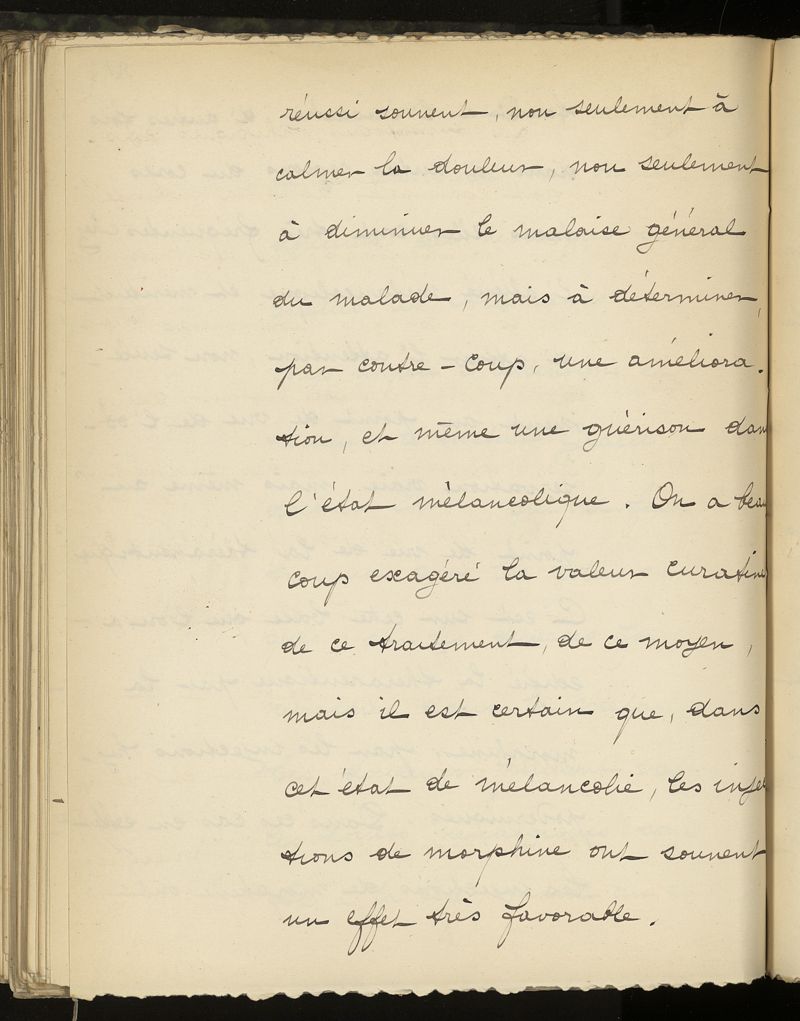 réussi souvent, non seulement à
calmer la douleur, non seulement
à diminuer le malaise général
du malade, mais à déterminer,
par contre-coup, une améliora-
tion, et même une guérison dans
l'état mélancolique. On a beau
coup exagéré la valeur curative
de ce traitement, de ce moyen,
mais il est certain que, dans
cet état de mélancolie, les injec
tions de morphine ont souvent
un effet très favorable.